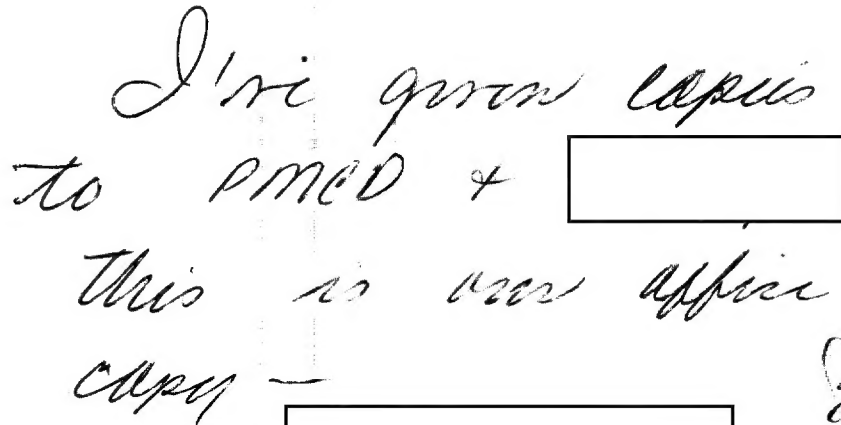 I've given copies
to PMCD +
this is our office
copy —